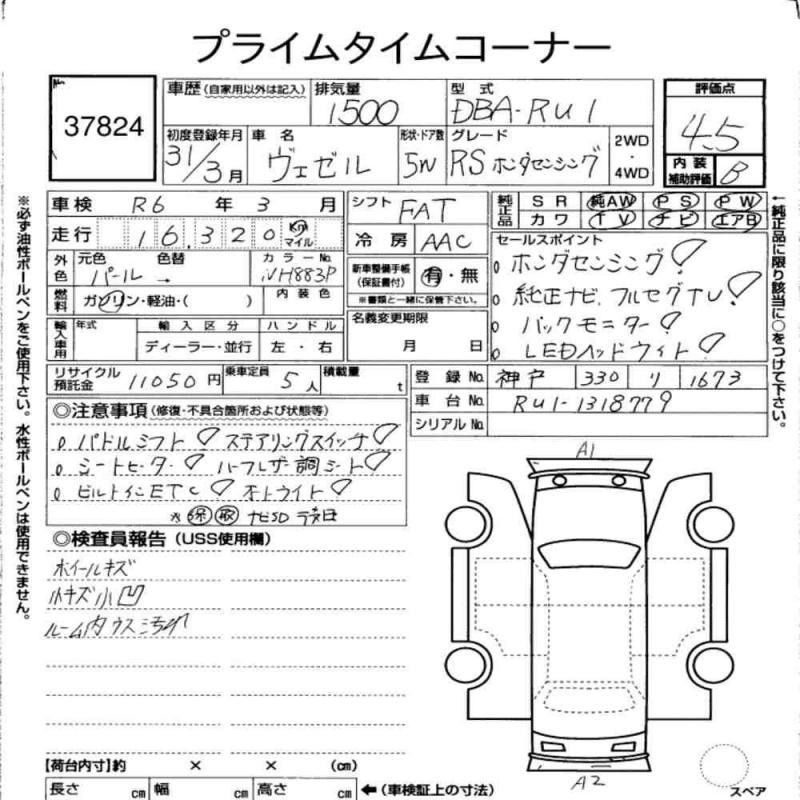 プライムタイムコーナー
No.
37824
車歴(自家用以外は記入)
排気量
1500
型 式
DBA-RU1
評価点
4.5
初度登録年月
31/3月
車 名
ヴェゼル
形状・ドア数
5W
グレード
RSホンダセンシング
2WD
・
4WD
内 装
補助評価
B
車検 R6 年 3 月
シフト
FAT
純正品
SR 純AW PS PW
カワ TV ナビ エアB
走行 16,320 Km マイル
冷 房 AAC
セールスポイント
外色
元色 色替
パール →
カラーNo.
NH883P
新車整備手帳
(保証書付)
有・無
※書類と一緒に保管下さい。
。ホンダセンシング!
。純正ナビ、フルセグTV!
。バックモニター!
。LEDヘッドライト!
燃料
ガソリン・軽油・( )
内 装 色
名義変更期限
月 日
輸入車用
年式
輸 入 区 分
ハ ン ド ル
ディーラー・並行
左 ・ 右
リサイクル
預託金
11050円
乗車定員
5人
積載量
t
登 録 No. 神戸 330 リ 1673
車 台 No. RU1-1318779
シリアルNo.
◎注意事項(修復・不具合箇所および状態等)
。パドルシフト! ステアリングスイッチ!
。シートヒーター! ハーフレザー調シート!
。ビルトインETC! オートライト!
※保 取 ナビSD 後日
◎検査員報告(USS使用欄)
ホイールキズ
小キズ小凹
ルーム内ウス汚れ
A1
A2
スペア
【荷台内寸】約 × × (cm)
長さ cm 幅 cm 高さ cm
←(車検証上の寸法)
※必ず油性ボールペンをご使用下さい。水性ボールペンは使用できません。
←純正品に限り該当に○をつけて下さい。